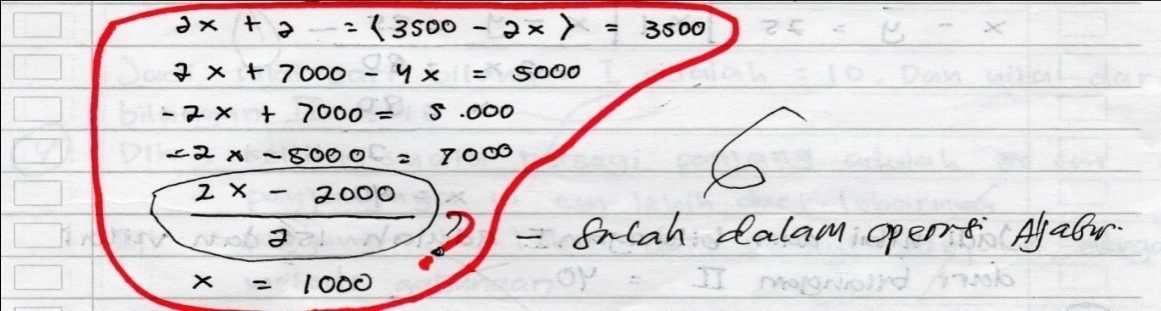 2x + 2 = (3500 - 2x) = 3500
2x + 7000 - 4x = 5000
-2x + 7000 = 5.000
-2x - 5000 = 7000
2x - 2000
2
?
x = 1000
6
- Salah dalam operasi Aljabar.